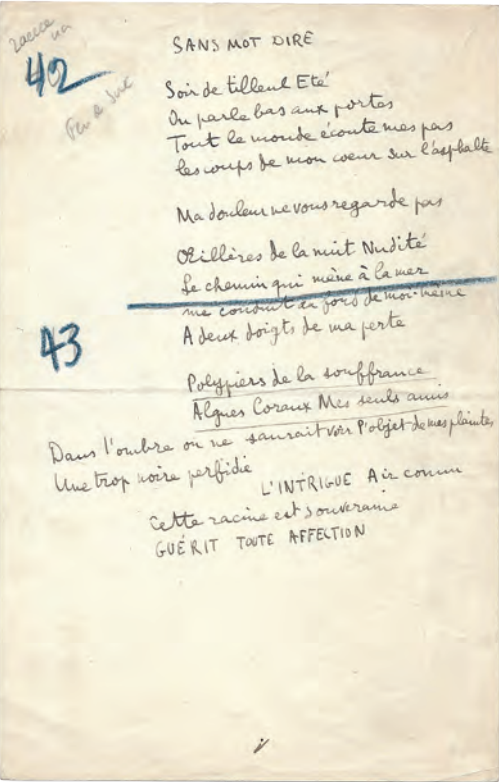 SANS MOT DIRE
42
Soir de tilleul Eté
On parle bas aux portes
Tout le monde écoute mes pas
les coups de mon coeur sur l'asphalte
Ma douleur ne vous regarde pas
Œillères de la nuit Nudité
Le chemin qui mène à la mer
me conduit au fond de moi-même
A deux doigts de ma perte
43
Polypiers de la souffrance
Algues Coraux Mes seuls amis
Dans l'ombre on ne saurait voir l'objet de mes plaintes
Une trop noire perfidie
L'INTRIGUE Air connu
Cette racine est souveraine
GUÉRIT TOUTE AFFECTION